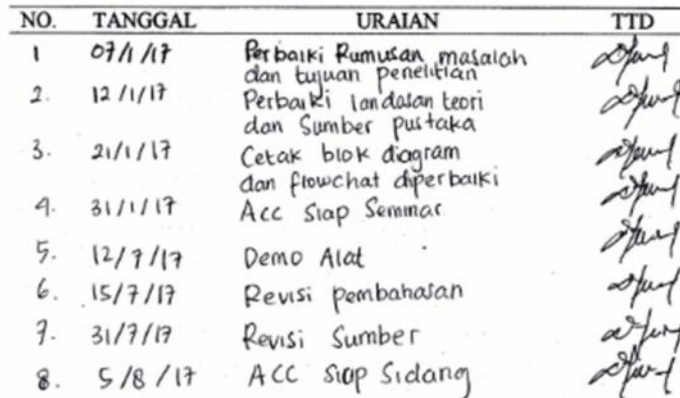 NO. TANGGAL URAIAN TTD
1 07/1/17 Perbaiki Rumusan masalah
dan tujuan penelitian
2. 12/1/17 Perbaiki landasan teori
dan Sumber pustaka
3. 21/1/17 Cetak blok diagram
dan flowchat diperbaiki
4. 31/1/17 Acc Siap Seminar
5. 12/7/17 Demo Alat
6. 15/7/17 Revisi pembahasan
7. 31/7/17 Revisi Sumber
8. 5/8/17 ACC Siap Sidang